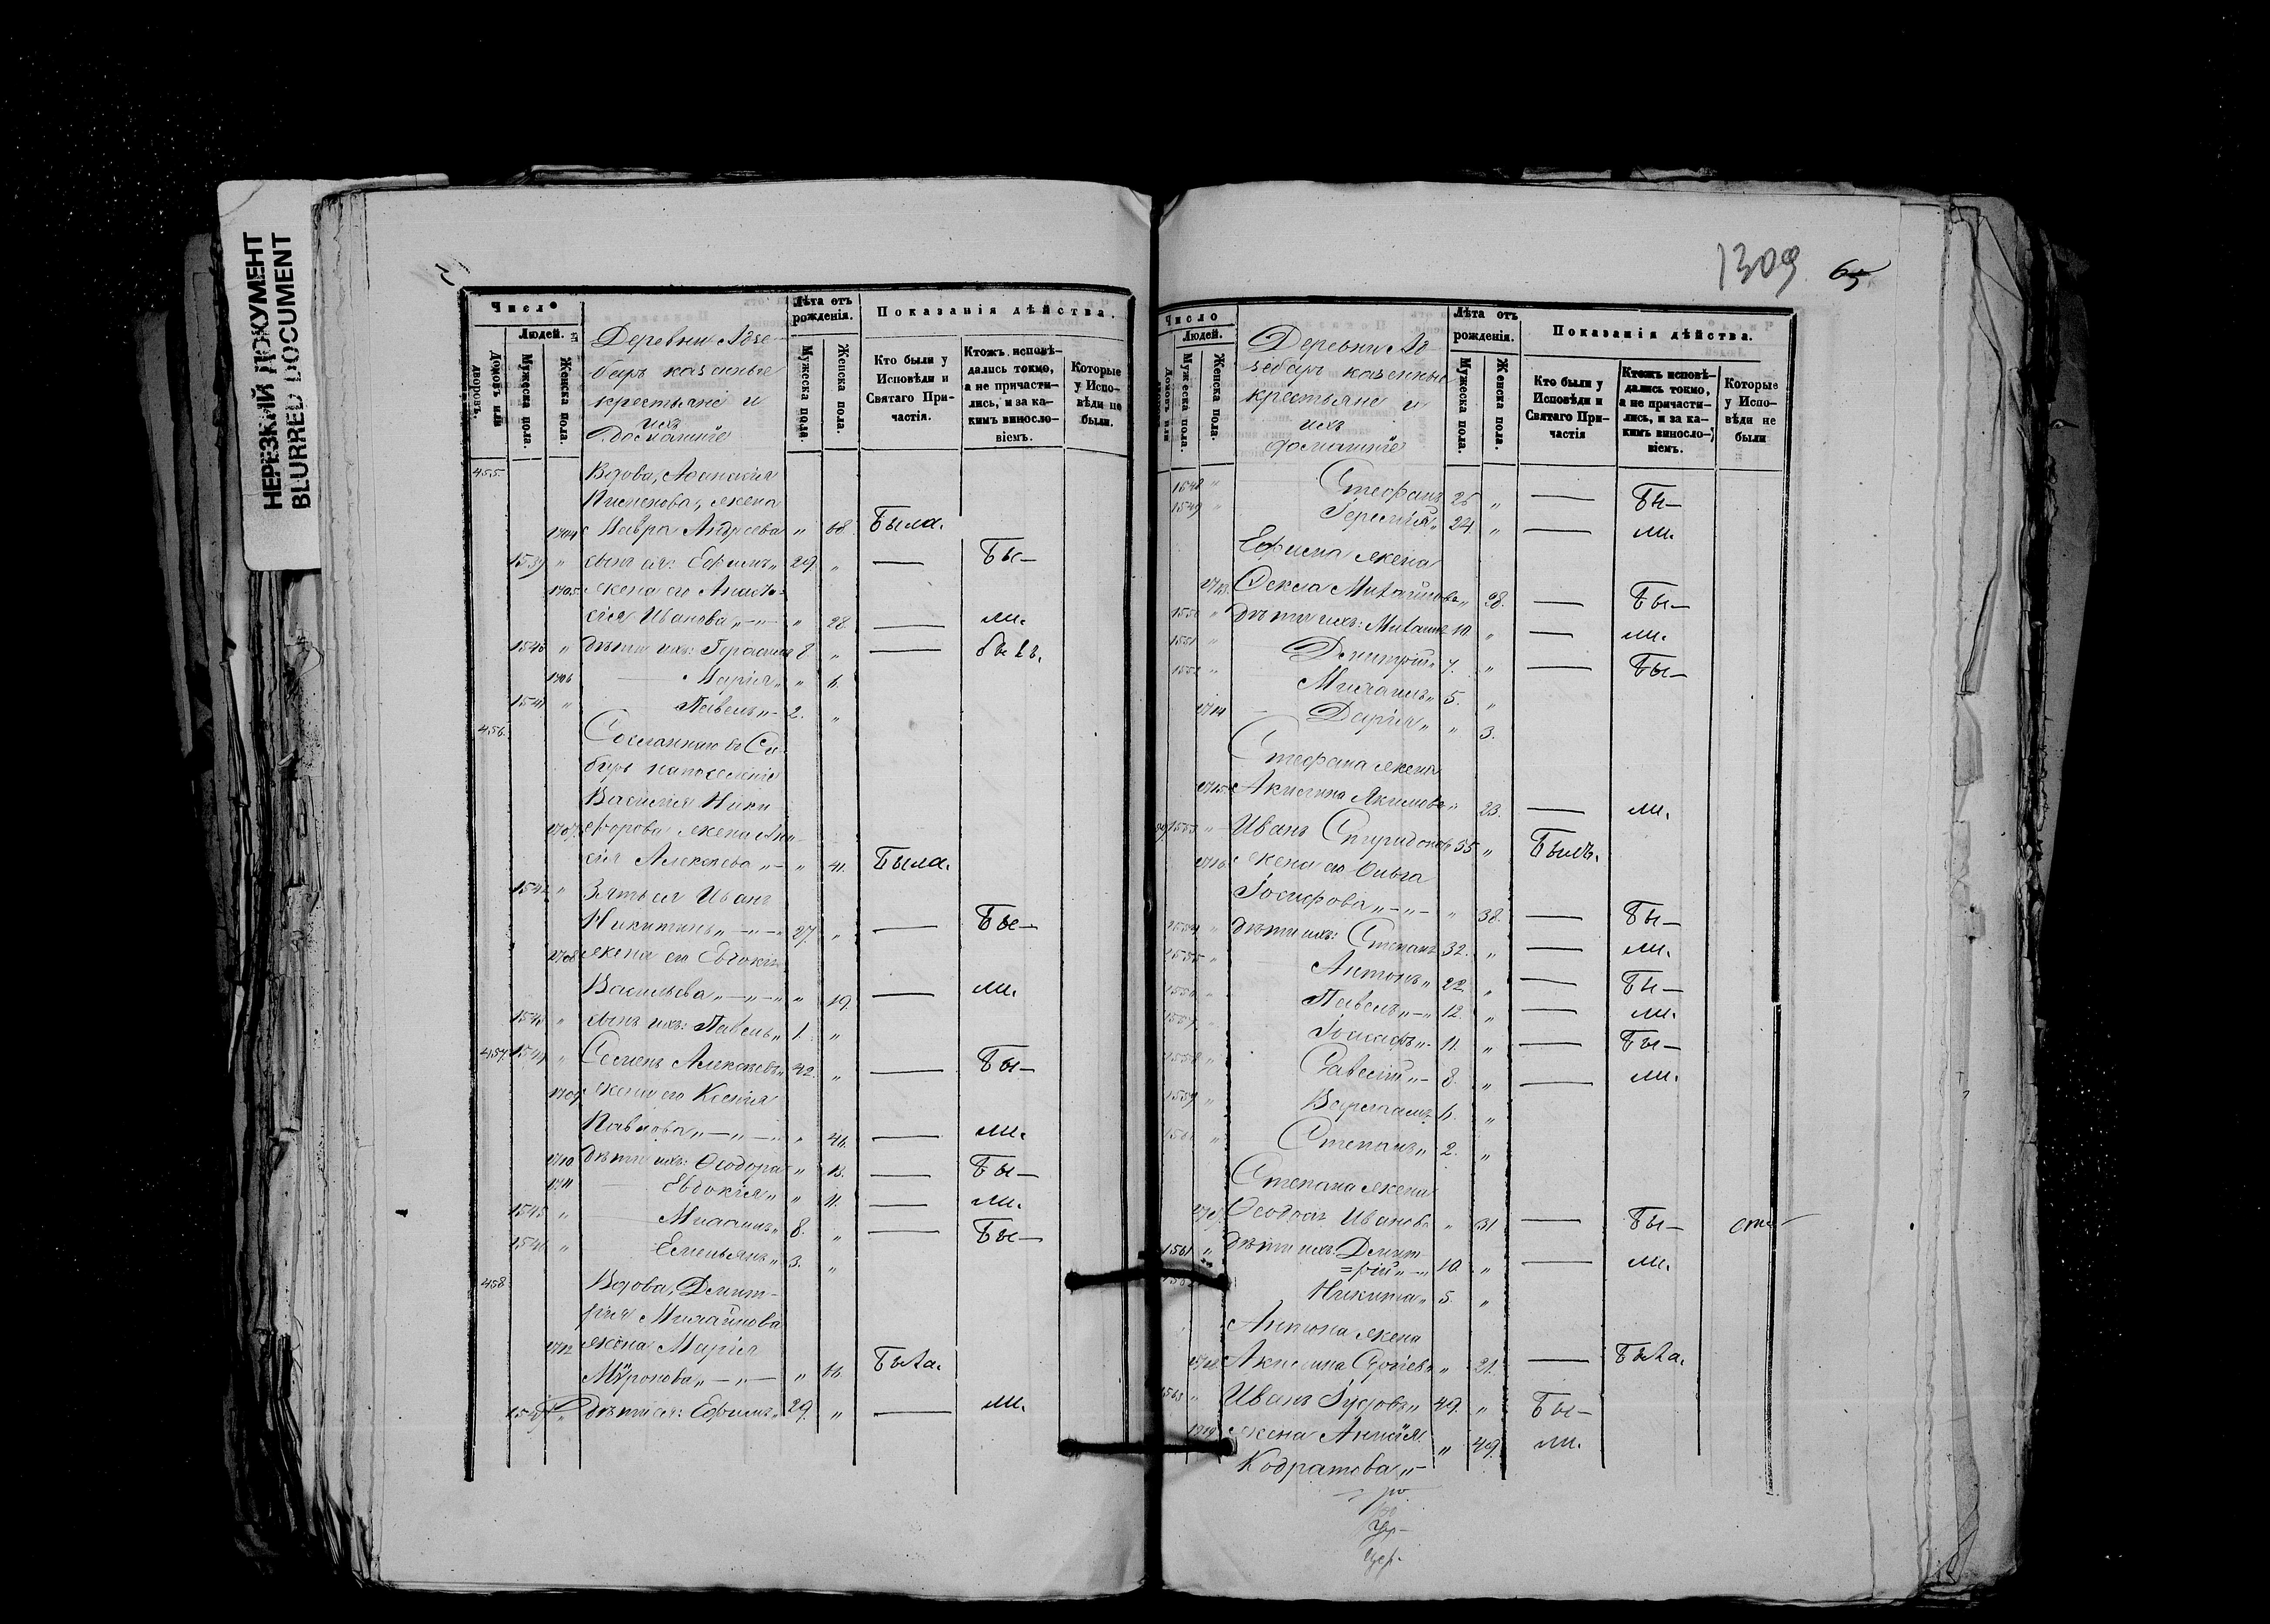 НЕРЕЗКИЙ ДОКУМЕНТ
BLURRED DOCUMENT
Число
Людей.
Домовъ или дворовъ.
Мужеска пола.
Женска пола.
Деревни Адзе-
баръ казенные
крестьяне и
ихъ
домашніе
Лѣта отъ рожденія.
Мужеска пола.
Женска пола.
Показанія дѣйства.
Кто были у Исповѣди и Святаго Причастія.
Ктожъ исповѣдались токмо, а не причастились, и за какимъ винословіемъ.
Которые у Исповѣди не были.
455. Вдова, Афанасія
Пименова, жена
1704 Мавра Андреева " 68. Была.
1539 " сынъ ея: Ефимъ " 29. " — Бы—
1705 жена его Анаста-
сія Иванова " — " — " 28. — ли.
1540 " дѣти ихъ: Герасимъ 8. " —
1706 Марія " " 6.
1541 " Павелъ " — 2. "
456. Сосланнаго въ Си-
бирь на поселеніе
Василія Ники
1707 форова жена
Алексѣева " — " 41. Была.
1542 " Зять ея Иванъ
Никитинъ " — " — " 27. " — Бы—
1708 жена его Евдокія
Васильева " — " — " " 19. — ли.
1543 " сынъ ихъ: Павелъ " 1. "
457. 1544 " Семенъ Алексѣевъ " 42. " — Бы—
1709 жена его Ксенія
Павлова " — " — " " 46. — ли.
1710 дѣти ихъ: Ѳеодора " 13. — Бы—
1711 Евдокія " " 11. — ли.
1545 " Михаилъ " 8. " — Бы—
1546 " Емельянъ " 3. "
458 Вдова, Димит-
рія Михайлова
1712 жена Марія
Мѵронова " — " — " 66. Была.
1547 " дѣти ея: Ефимъ " 29. " — ли.
1309 65
Число
Людей.
Домовъ или
Мужеска пола.
Женска пола.
Деревни Ад-
зебаръ казенные
крестьяне и
ихъ
домашніе
Лѣта отъ рожденія.
Мужеска пола.
Женска пола.
Показанія дѣйства.
Кто были у Исповѣди и Святаго Причастія
Ктожъ исповѣдались токмо, а не причастились, и за какимъ винословіемъ.
Которые у Исповѣди не были
1548 " Стефанъ 26 " — Бы—
1549 " Іеремія " 24. " — ли.
Ефима жена
1713 Ѳекла Михайлова " 28. — Бы—
1550 " дѣти ихъ: Михаилъ 10. " — ли.
1551 " Димитрій " 7. " — Бы—
1552 " Михаилъ " 5. "
1714 Дарія " " 3.
Стефана жена
1715 Акилина Якимова " 23. — ли.
1553 " Иванъ Спиридоновъ 55 " Былъ.
1716 жена его Ольга
Іосифова " — " — " 38. — Бы—
1554 " дѣти ихъ: Степанъ 32. " — ли.
1555 " Антонъ " 22. " — Бы—
1556 " Павелъ " — " 12. " — ли.
1557 Іосифъ " — 11. " — Бы—
1558 " Савелій " — 8. " — ли.
1559 " Варлаамъ 6. "
1560 " Степанъ " 2. "
Степана жена
1717 Ѳеодосія Иванова " 31 — Бы—
1561 " дѣти ихъ: Димит-
=рій " — " 10. " — ли.
1562 Никита " 5. "
Антона жена
1718 Акилина " 21. — Была.
1563 " Иванъ Іудовъ " 49. " Бы—
1719 жена Аннія
Кодратова " — " 49. ли.